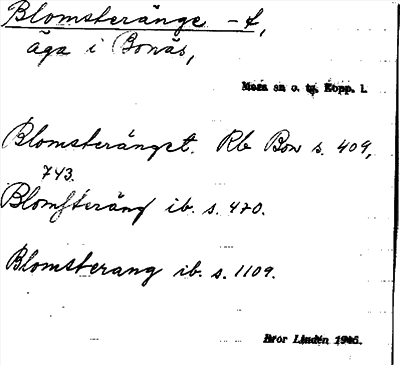 Blomsteränge -t,
äga i Bonäs,
Mora sn o. tg. Kopp. l.
Blomsteränget. Rb Bon s. 409,
743.
Blomsteräng ib. s. 470.
Blomsterang ib. s. 1109.
Bror Lindén